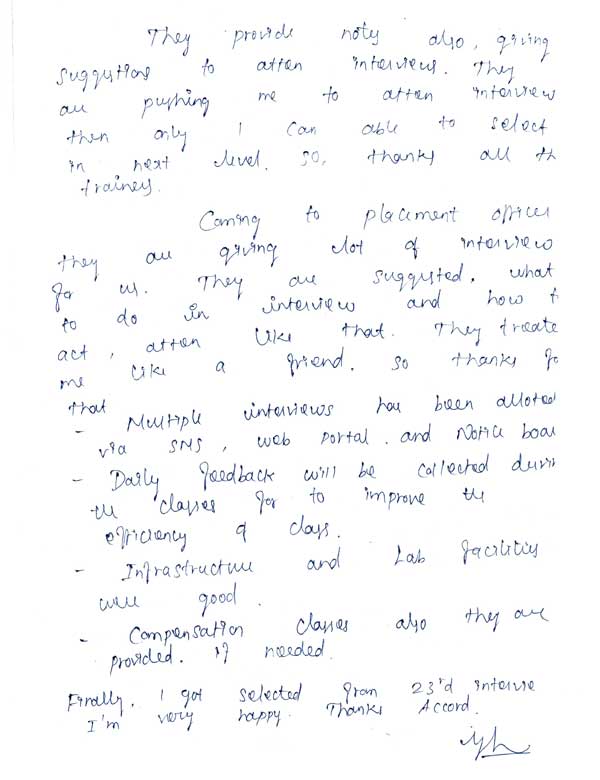 They provide notes also, giving
suggustions to atten interviews. They
are pushing me to atten interview
then only I can able to select
in next level. So, thanks all th
trainers.
Coming to placement officer
they are giving lot of interview
for us. They are suggusted, what
to do in interview and how t
act, atten like that. They treate
me like a friend. So thanks fo
that
- Multiple interviews has been alloted
via SMS, web portal. and Notice boar
- Daily feedback will be collected durin
the classes for to improve the
efficiency of class.
- Infrastructure and Lab facilities
were good.
- Compensation classes also they are
provided. if needed.
Finally. I got selected from 23rd intervie
I'm very happy. Thanks Accord.